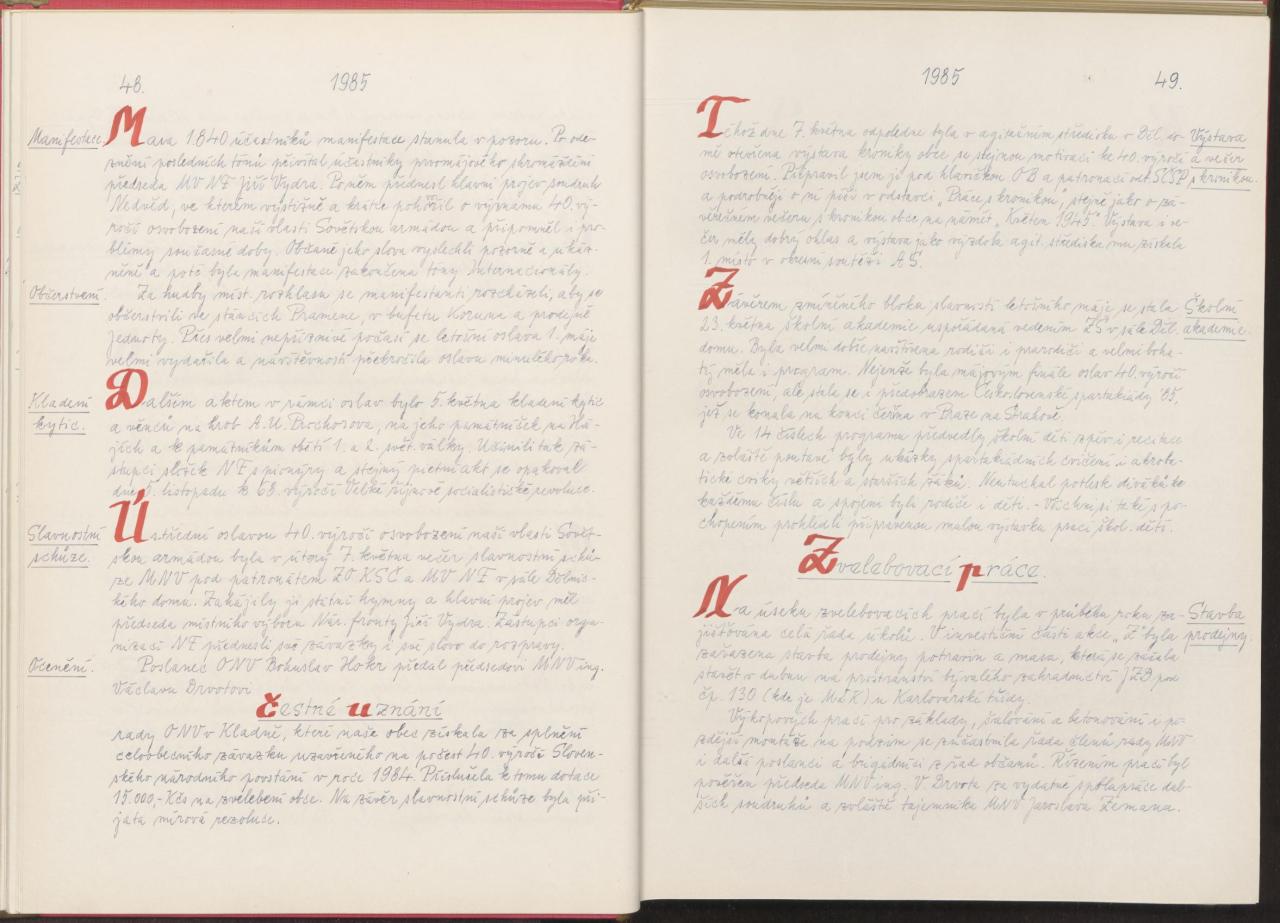 48.
1985
Manifestace.
Masa 1.840 účastníků manifestace stanula v pozoru. Po ode-
znění posledních tónů přivítal účastníky prvomájového shromáždění
předseda MV NF Jiří Vydra. Po něm přednesl hlavní projev soudruh
Nedvěd, ve kterém výstižně a krátce pohovořil o významu 40. vý-
ročí osvobození naší vlasti Sovětskou armádou a připomněl i pro-
blémy současné doby. Občané jeho slova vyslechli pozorně a ukáz-
něně a poté byla manifestace zakončena tóny Internacionály.
Občerstvení.
Za hudby míst. rozhlasu se manifestanti rozcházeli, aby se
občerstvili ve stáncích Pramene, v bufetu Koruna a prodejně
Jednoty. Přes velmi nepříznivé počasí se letošní oslava 1. máje
velmi vydařila a návštěvností překročila oslavu minulého roku.
Kladení
kytic.
Dalším aktem v rámci oslav bylo 5. května kladení kytic
a věnců na hrob A. U. Prochorova, na jeho památníček na Há-
jích a k památníkům obětí 1. a 2. svět. války. Učinili tak zá-
stupci složek NF s pionýry a stejný pietní akt se opakoval
dne 5. listopadu k 68. výročí Velké říjnové socialistické revoluce.
Slavnostní
schůze.
Ústřední oslavou 40. výročí osvobození naší vlasti Sovět-
skou armádou byla v úterý 7. května večer slavnostní schů-
ze MNV pod patronátem ZO KSČ a MV NF v sále Dělnic-
kého domu. Zahájily ji státní hymny a hlavní projev měl
předseda místního výboru Nár. fronty Jiří Vydra. Zástupci orga-
nizací NF přednesli své závazky i své slovo do rozpravy.
Ocenění.
Poslanec ONV Bohuslav Hokr předal předsedovi MNV ing.
Václavu Drvotovi
čestné uznání
rady ONV v Kladně, které naše obec získala za splnění
celoobecního závazku uzavřeného na počest 40. výročí Sloven-
ského národního povstání v roce 1984. Příslušela k tomu dotace
15.000,- Kčs na zvelebení obce. Na závěr slavnostní schůze byla při-
jata mírová rezoluce.
1985
49.
Téhož dne 7. května odpoledne byla v agitačním středisku v Děl. do-
mě otevřena výstava kroniky obce se stejnou motivací ke 40. výročí
osvobození. Připravil jsem ji pod hlavičkou OB a patronací odb. SČSP
a podrobněji o ní píši v odstavci „Práce s kronikou", stejně jako o zá-
věrečném večeru s kronikou obce na námět „Květen 1945". Výstava i ve-
čer měly dobrý ohlas a výstava jako výzdoba agit. střediska mu získala
1. místo v okresní soutěži AS.
Výstava
a večer
s kronikou.
Závěrem zmíněného bloku slavností letošního máje se stala
23. května školní akademie uspořádaná vedením ZŠ v sále Děl.
domu. Byla velmi dobře navštívena rodiči i prarodiči a velmi boha-
tý měla i program. Nejenže byla májovým finále oslav 40. výročí
osvobození, ale stala se i předobrazem Československé spartakiády '85,
jež se konala na konci června v Praze na Strahově.
Školní
akademie.
Ve 14 číslech programu předvedly školní děti zpěv i recitace
a zvláště poutavé byly ukázky spartakiádních cvičení i akroba-
tické cviky větších a starších žáků. Neutuchal potlesk diváků ke
každému číslu a spojeni byli rodiče i děti. - Všichni si také s po-
chopením prohlédli připravenou malou výstavku prací škol. dětí.
Zvelebovací práce.
Na úseku zvelebovacích prací byla v průběhu roku za-
jišťována celá řada úkolů. V investiční části akce „Z" byla
zařazena stavba prodejny potravin a masa, která se začala
stavět v dubnu na prostranství bývalého zahradnictví JZD pod
čp. 130 (kde je MLK) u Karlovarské třídy.
Stavba
prodejny.
Výkopových prací pro základy, šalování a betonování i po-
zdější montáže na podzim se zúčastnila řada členů rady MNV
i další poslanci a brigádníci z řad občanů. Řízením prací byl
pověřen předseda MNV ing. V. Drvota za vydatné spolupráce dal-
ších soudruhů a zvláště tajemníka MNV Jaroslava Zemana.